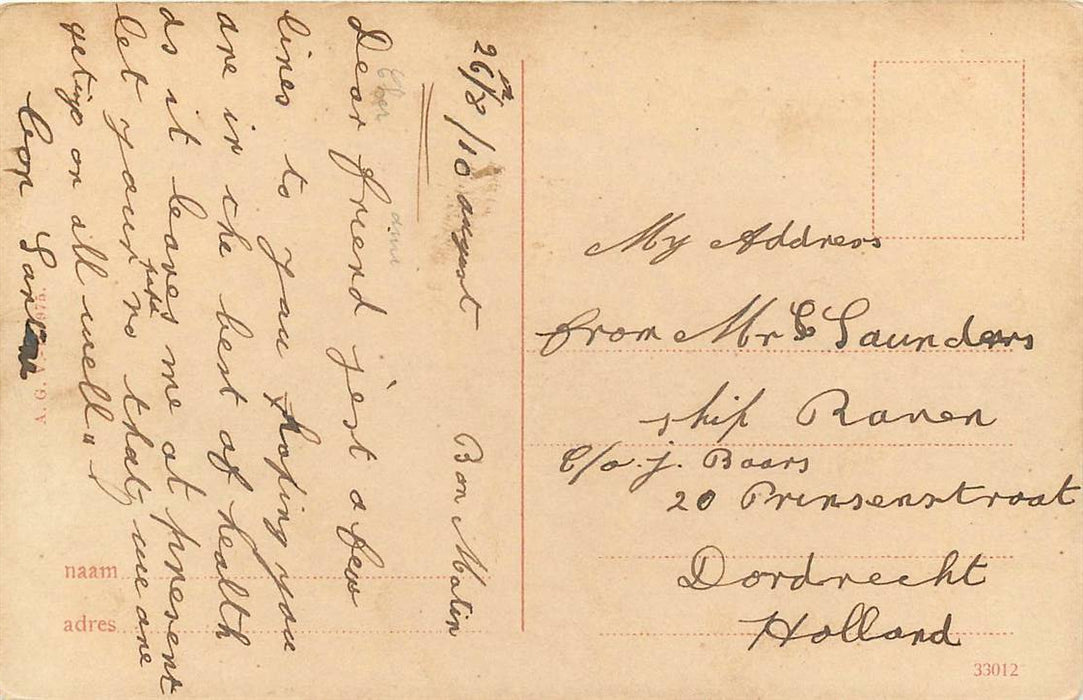 26/8/10 august Bon Matin
Cher ami
Dear friend jest a few
lines to you hoping you
are in the best of health
as it leaves me at present
let you no that we are
geting on all well"
My Address
from Mr G Saunders
ship Raven
C/o. J. Baars
20 Prinsenstraat
Dordrecht
Holland
naam
adres
A. G. V.
33012